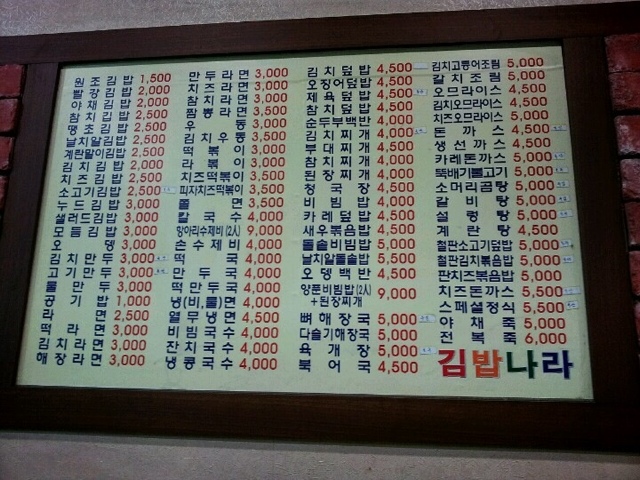 원조김밥 1,500
빨강김밥 2,000
야채김밥 2,000
참치김밥 2,500
땡초김밥 2,500
날치알김밥 2,500
계란말이김밥 2,500
김치김밥 2,500
치즈김밥 2,500
소고기김밥 2,500
누드김밥 3,000
샐러드김밥 3,000
모듬김밥 3,000
오뎅 3,000
김치만두 3,000
고기만두 3,000
물만두 3,000
공기밥 1,000
라면 2,500
떡라면 3,000
김치라면 3,000
해장라면 3,000
만두라면 3,000
치즈라면 3,000
참치라면 3,000
짬뽕라면 3,500
우동 3,000
김치우동 3,500
떡볶이 3,000
라볶이 3,000
치즈떡볶이 3,500
피자치즈떡볶이 3,500
쫄면 3,500
칼국수 4,000
항아리수제비(2人) 9,000
손수제비 4,000
떡국 4,000
만두국 4,000
떡만두국 4,000
냉(비,물)면 4,000
열무냉면 4,500
비빔국수 4,000
잔치국수 4,000
냉콩국수 4,000
김치덮밥 4,500
오징어덮밥 4,500
제육덮밥 4,500
참치덮밥 4,500
순두부백반 4,000
김치찌개 4,000
부대찌개 4,500
참치찌개 4,000
된장찌개 4,000
청국장 4,500
비빔밥 4,000
카레덮밥 4,500
새우볶음밥 4,500
돌솥비빔밥 5,000
날치알돌솥밥 5,500
오뎅백반 4,500
양푼비빔밥(2人)
+된장찌개 9,000
뼈해장국 5,000
다슬기해장국 5,000
육개장 5,000
북어국 4,500
김치고등어조림 5,000
갈치조림 5,000
오므라이스 4,500
김치오므라이스 5,000
치즈오므라이스 5,000
돈까스 4,500
생선까스 4,500
카레돈까스 5,000
뚝배기불고기 5,000
소머리곰탕 5,000
갈비탕 5,000
설렁탕 5,000
계란탕 4,500
철판소고기덮밥 5,000
철판김치볶음밥 5,000
판치즈볶음밥 5,000
치즈돈까스 5,500
스페셜정식 5,500
야채죽 5,000
전복죽 6,000
김밥나라